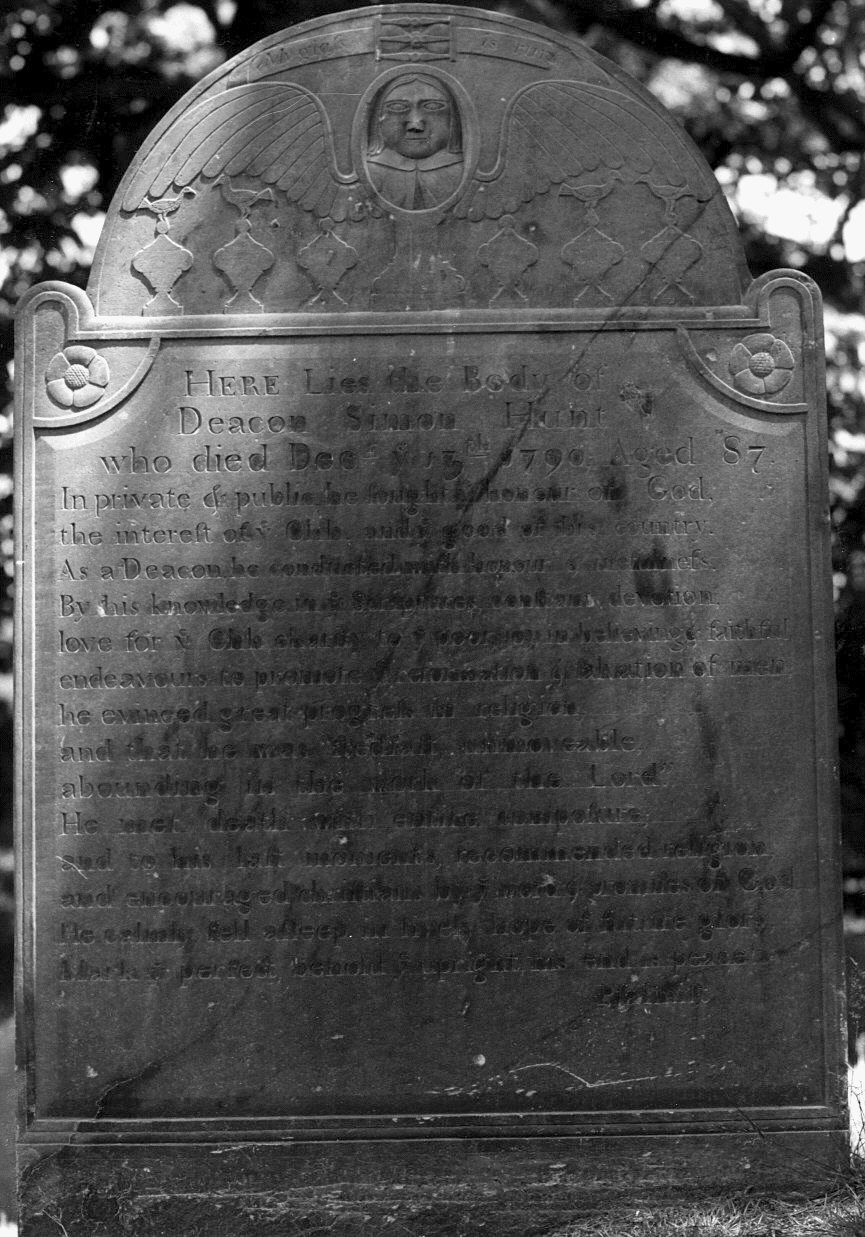 HERE Lies the Body of
Deacon Simon Hunt
who died Decr. ye 13th 1790. Aged 87.
In private & public, he sought ye honour of God,
the intereſt of ye Chh. and ye good of his country.
As a Deacon, he conducted with honour &
By his knowledge in ye Scriptures, conſtant devotion,
love for ye Chh charity to ye poor, joy in believing & faithful
endeavours to promote ye reformation & ſalvation of men
he evinced great progreſs in religion,
and that he was ſtedfaſt, unmoveable,
abounding in the work of the Lord"
He met death with entire compoſure,
and to his laſt moments, recommended religion,
and encouraged chriſtians by ye & promiſes of God
He calmly fell aſleep in lively hope of future glory
Mark ye perfect, behold ye upright, his end is peace